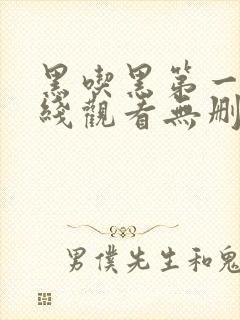 黑喫黑第一
綫觀看無删
男僕先生和鬼